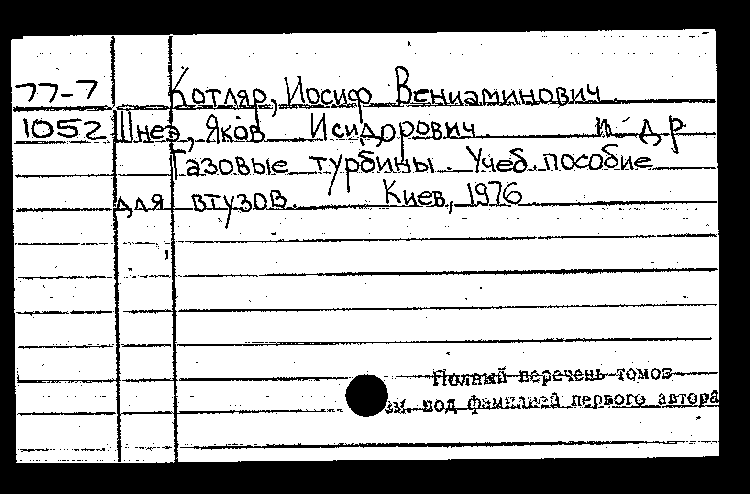 77-7 Котляр, Иосиф Вениаминович
1052 Шнеэ, Яков Исидорович и др
Газовые турбины. Учеб. пособие
для втузов. Киев, 1976
Полный перечень томов
см. под фамилией первого автора